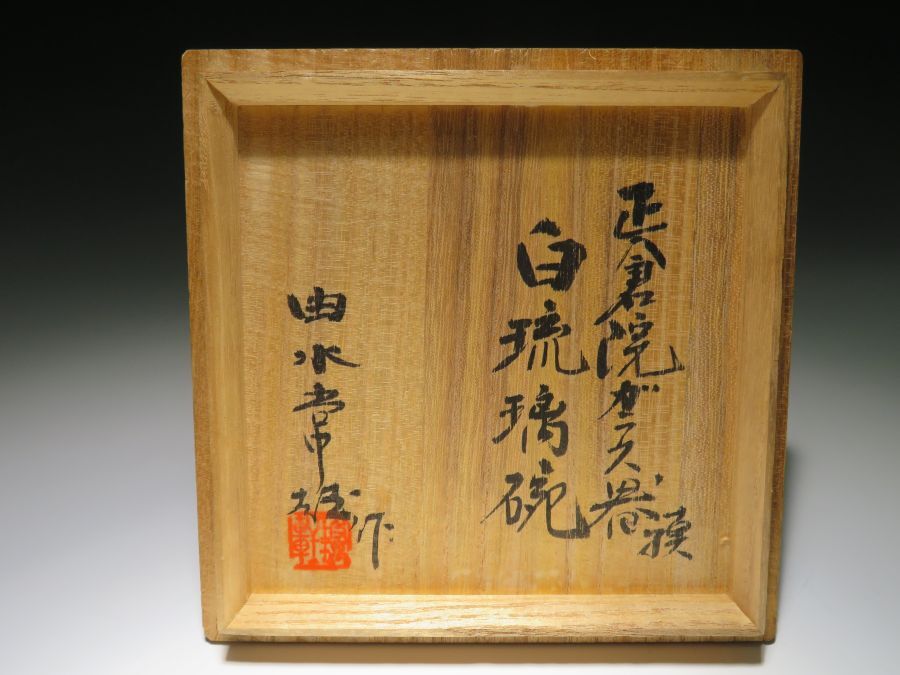 正倉院ガラス器模
白琉璃碗
由水常雄作